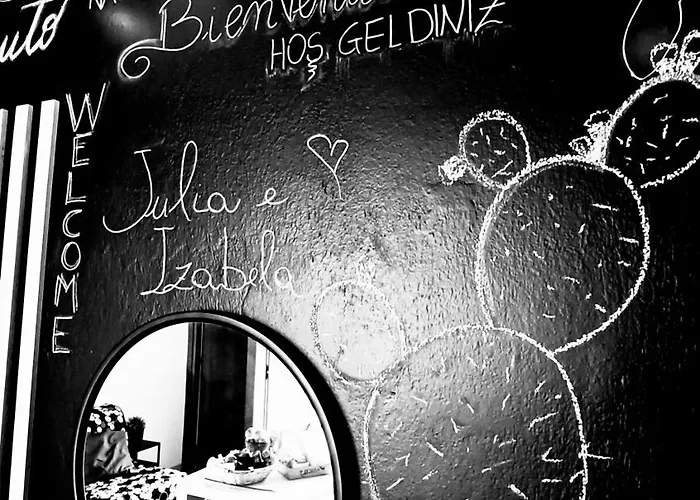 uto
Bienvenu
HOŞ GELDİNİZ
WELCOME
Julia e
Izabela